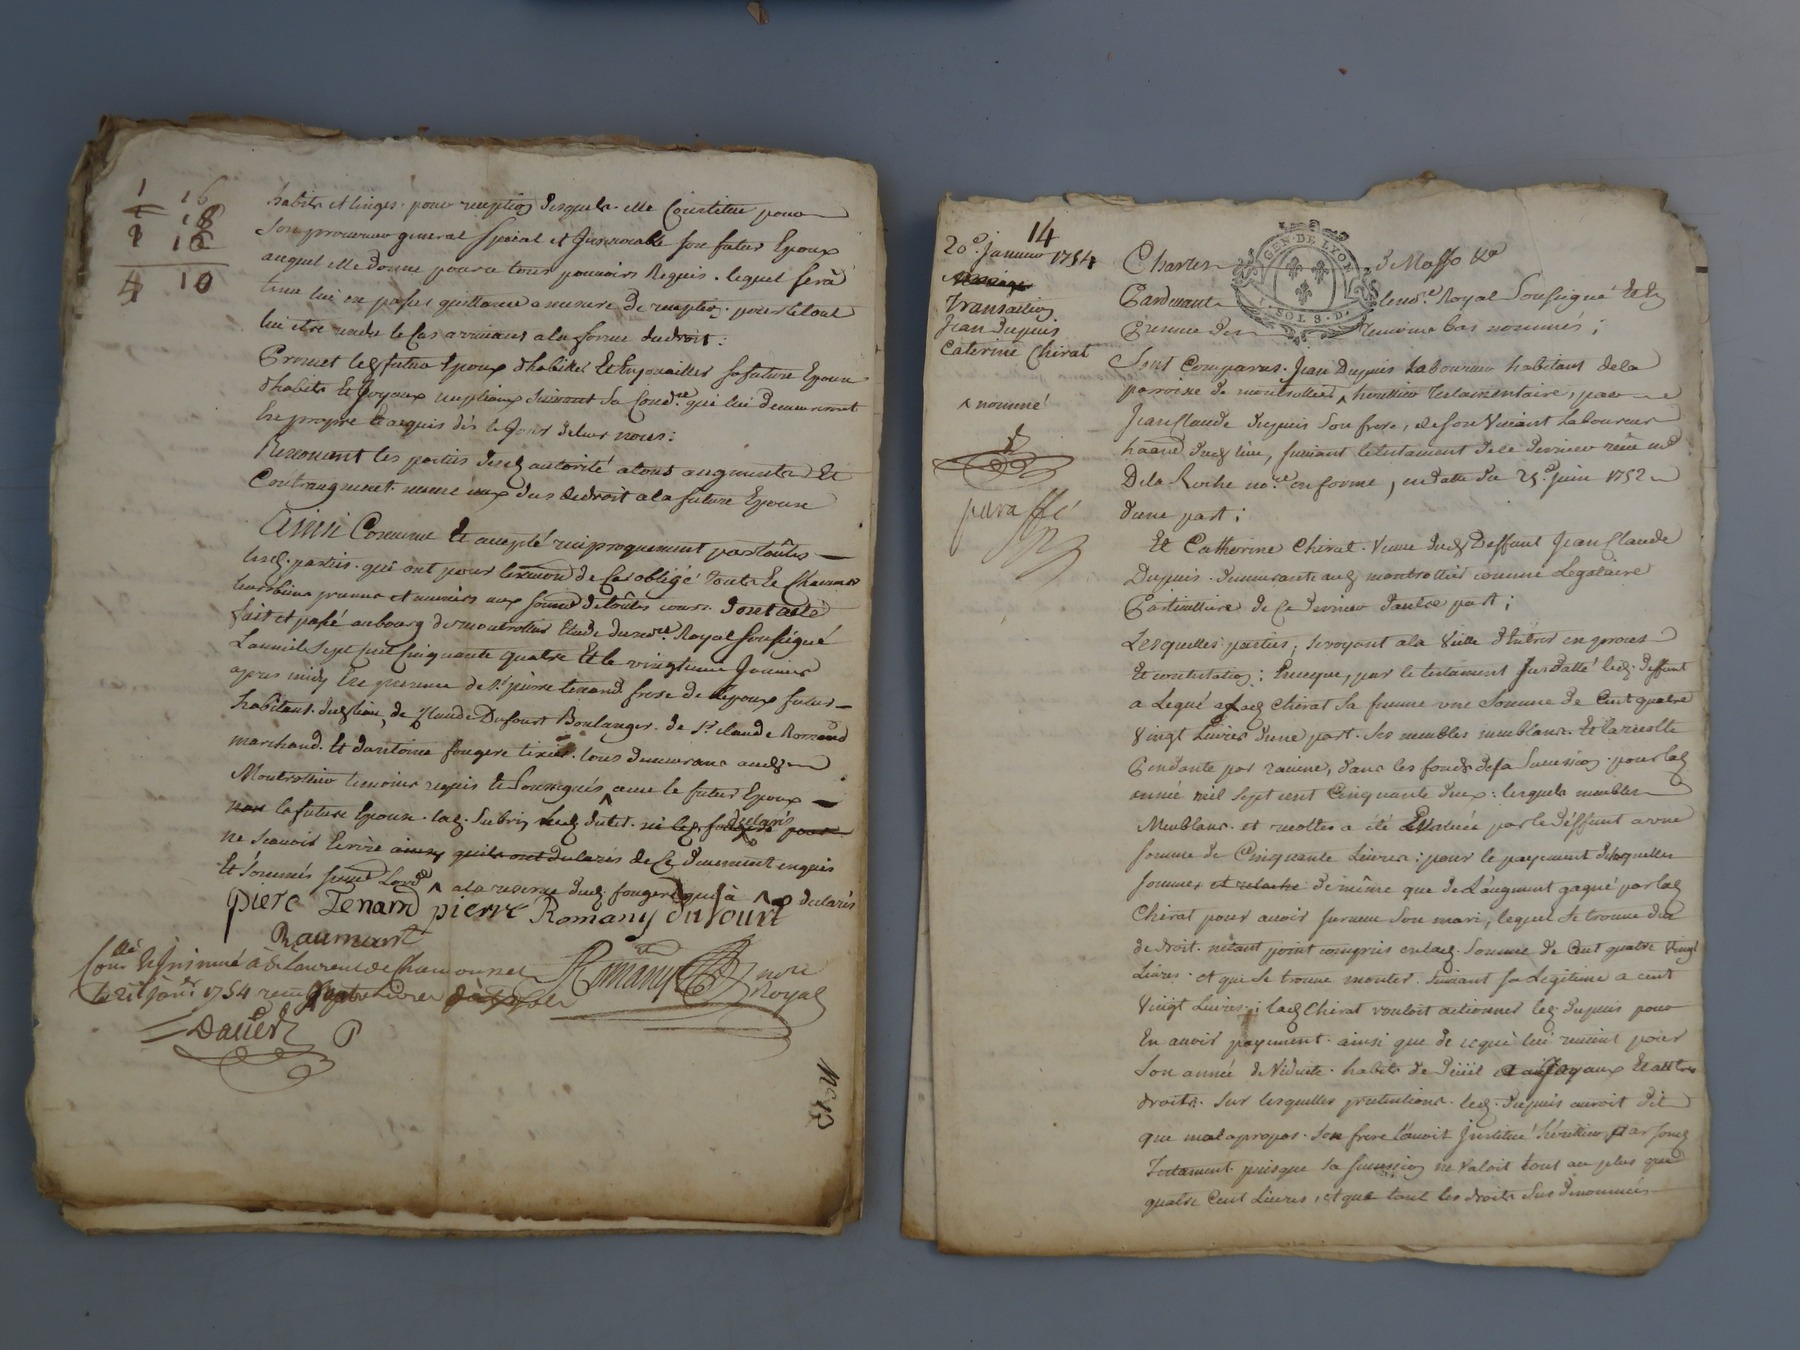 1 16
1 18
1 16
4 10
habits et linges. pour reception desquels. elle Constitue pour
Son procureur general Special et Irrevocable son futur Epoux
auquel elle donne pour ce tous pouvoirs Requis. lequel serâ
tenu lui en passer quittance a mesure de reception. pour le tout
lui etre rendu le Cas arrivant a la forme du droit:
Promet led futur Epoux d'habiller et Enjouailler sa future Epouse
d'habits et Joyaux nuptiaux suivant sa Cond.on qui lui demeureront
En propre et acquis dès le Jour de leur noces:
Renonçant les parties de lad autorité a tous augments et
Contraugment. meme aux dus de droit a la future Epouse
Ainsi Convenu et accepté reciproquement par toûtes
lesd. parties. qui ont pour l'execution de Ces obligé toute et Chacuns
leurs biens presens et avenirs aux soumd de toûtes cours. dont acte
fait et passé au bourg de montrottier Etude du no.re Royal soussigné
L'an mil sept cent cinquante quatre Et le vingtieme Janvier
apres midy En presence de S.r pierre tenand frere de l'epoux futur
habitant. dud lieu, de Claude Dufourt Boulanger. de S.r claude Romand
marchand. et d'antoine fougere tixier. tous demeurans aud
Montrottier temoins requis et Soussignés avec le futur Epoux
non la future Epouse. lad. Subrin declaré
ne Scavoir Ecrire ainsy quils ont declarés de Ce duement enquis
Et sommés a la reserve dud. fougere qui à declarés
piere Tenand pierre Romany dufourt
Raumant
Con.llé et Insinué à S.t Laurent de Chamousset
le 21 jan.er 1754 reçu quatre livres dix sols
Romany no.re Royal
Dauier
n.o 13
14
20.e Janvier 1754
Mariage
Transaction
Jean Dupuis
Caterine Chirat
^ nommé
paraffé
GEN. DE LYON
SOLS. D.
Chartes de Masso &a
Pardevant le no.re Royal Soussigné Et En
Presence des temoins bas nommés;
Sont Comparus. Jean Dupuis Laboureur habitant de la
paroisse de montrottier ^ heritier testamentaire, par
Jean Claude dupuis Son frere, de son Vivant Laboureur
dud lieu, suivant le testament de ce dernier reçu m.e
De la Roche no.re en forme, en datte du 25.e juin 1752
d'une part;
Et Catherine Chirat. Veuve dud Deffunt Jean Claude
Dupuis. demeurante aud montrottier comme Legataire
Particulliere de Ce dernier d'autre part;
Lesquelles parties, se voyant a la Veille d'Entrer en proces
Et contestation; Puisque, par le testament susdatté led. deffunt
a Legué a lad Chirat sa femme une somme de Cent quatre
Vingt Livres d'une part. Ses meubles meublans. Et la recolte
Pendante par racine, dans les fonds de sa Succession. pour lad
année mil sept cent Cinquante deux: lesquels meubles
Meublans. et recoltes a été Evaluée par le deffunt a une
somme de Cinquante Livres; pour le payement desquelles
sommes et relache de même que de L'augment gagné par lad
Chirat pour avoir survecu Son mari, lequel Se trouve dû
de droit. n'etant point compris en lad. somme de Cent quatre Vingt
Livres. et qui Se trouve monter. suivant sa Legitime a cent
Vingt Livres; lad Chirat vouloit actionner led. dupuis pour
En avoir payement. ainsi que de ce qui lui revient pour
Son année de Viduité. habits de Düil et autres
droits. Sur lesquelles pretentions. led. dupuis auroit dit
que mal a propos. Son frere l'avoit Institué heritier par sond
Testament. puisque Sa succession ne Valoit tout au plus que
quatre Cent Livres, et que tout les droits Sus denommés